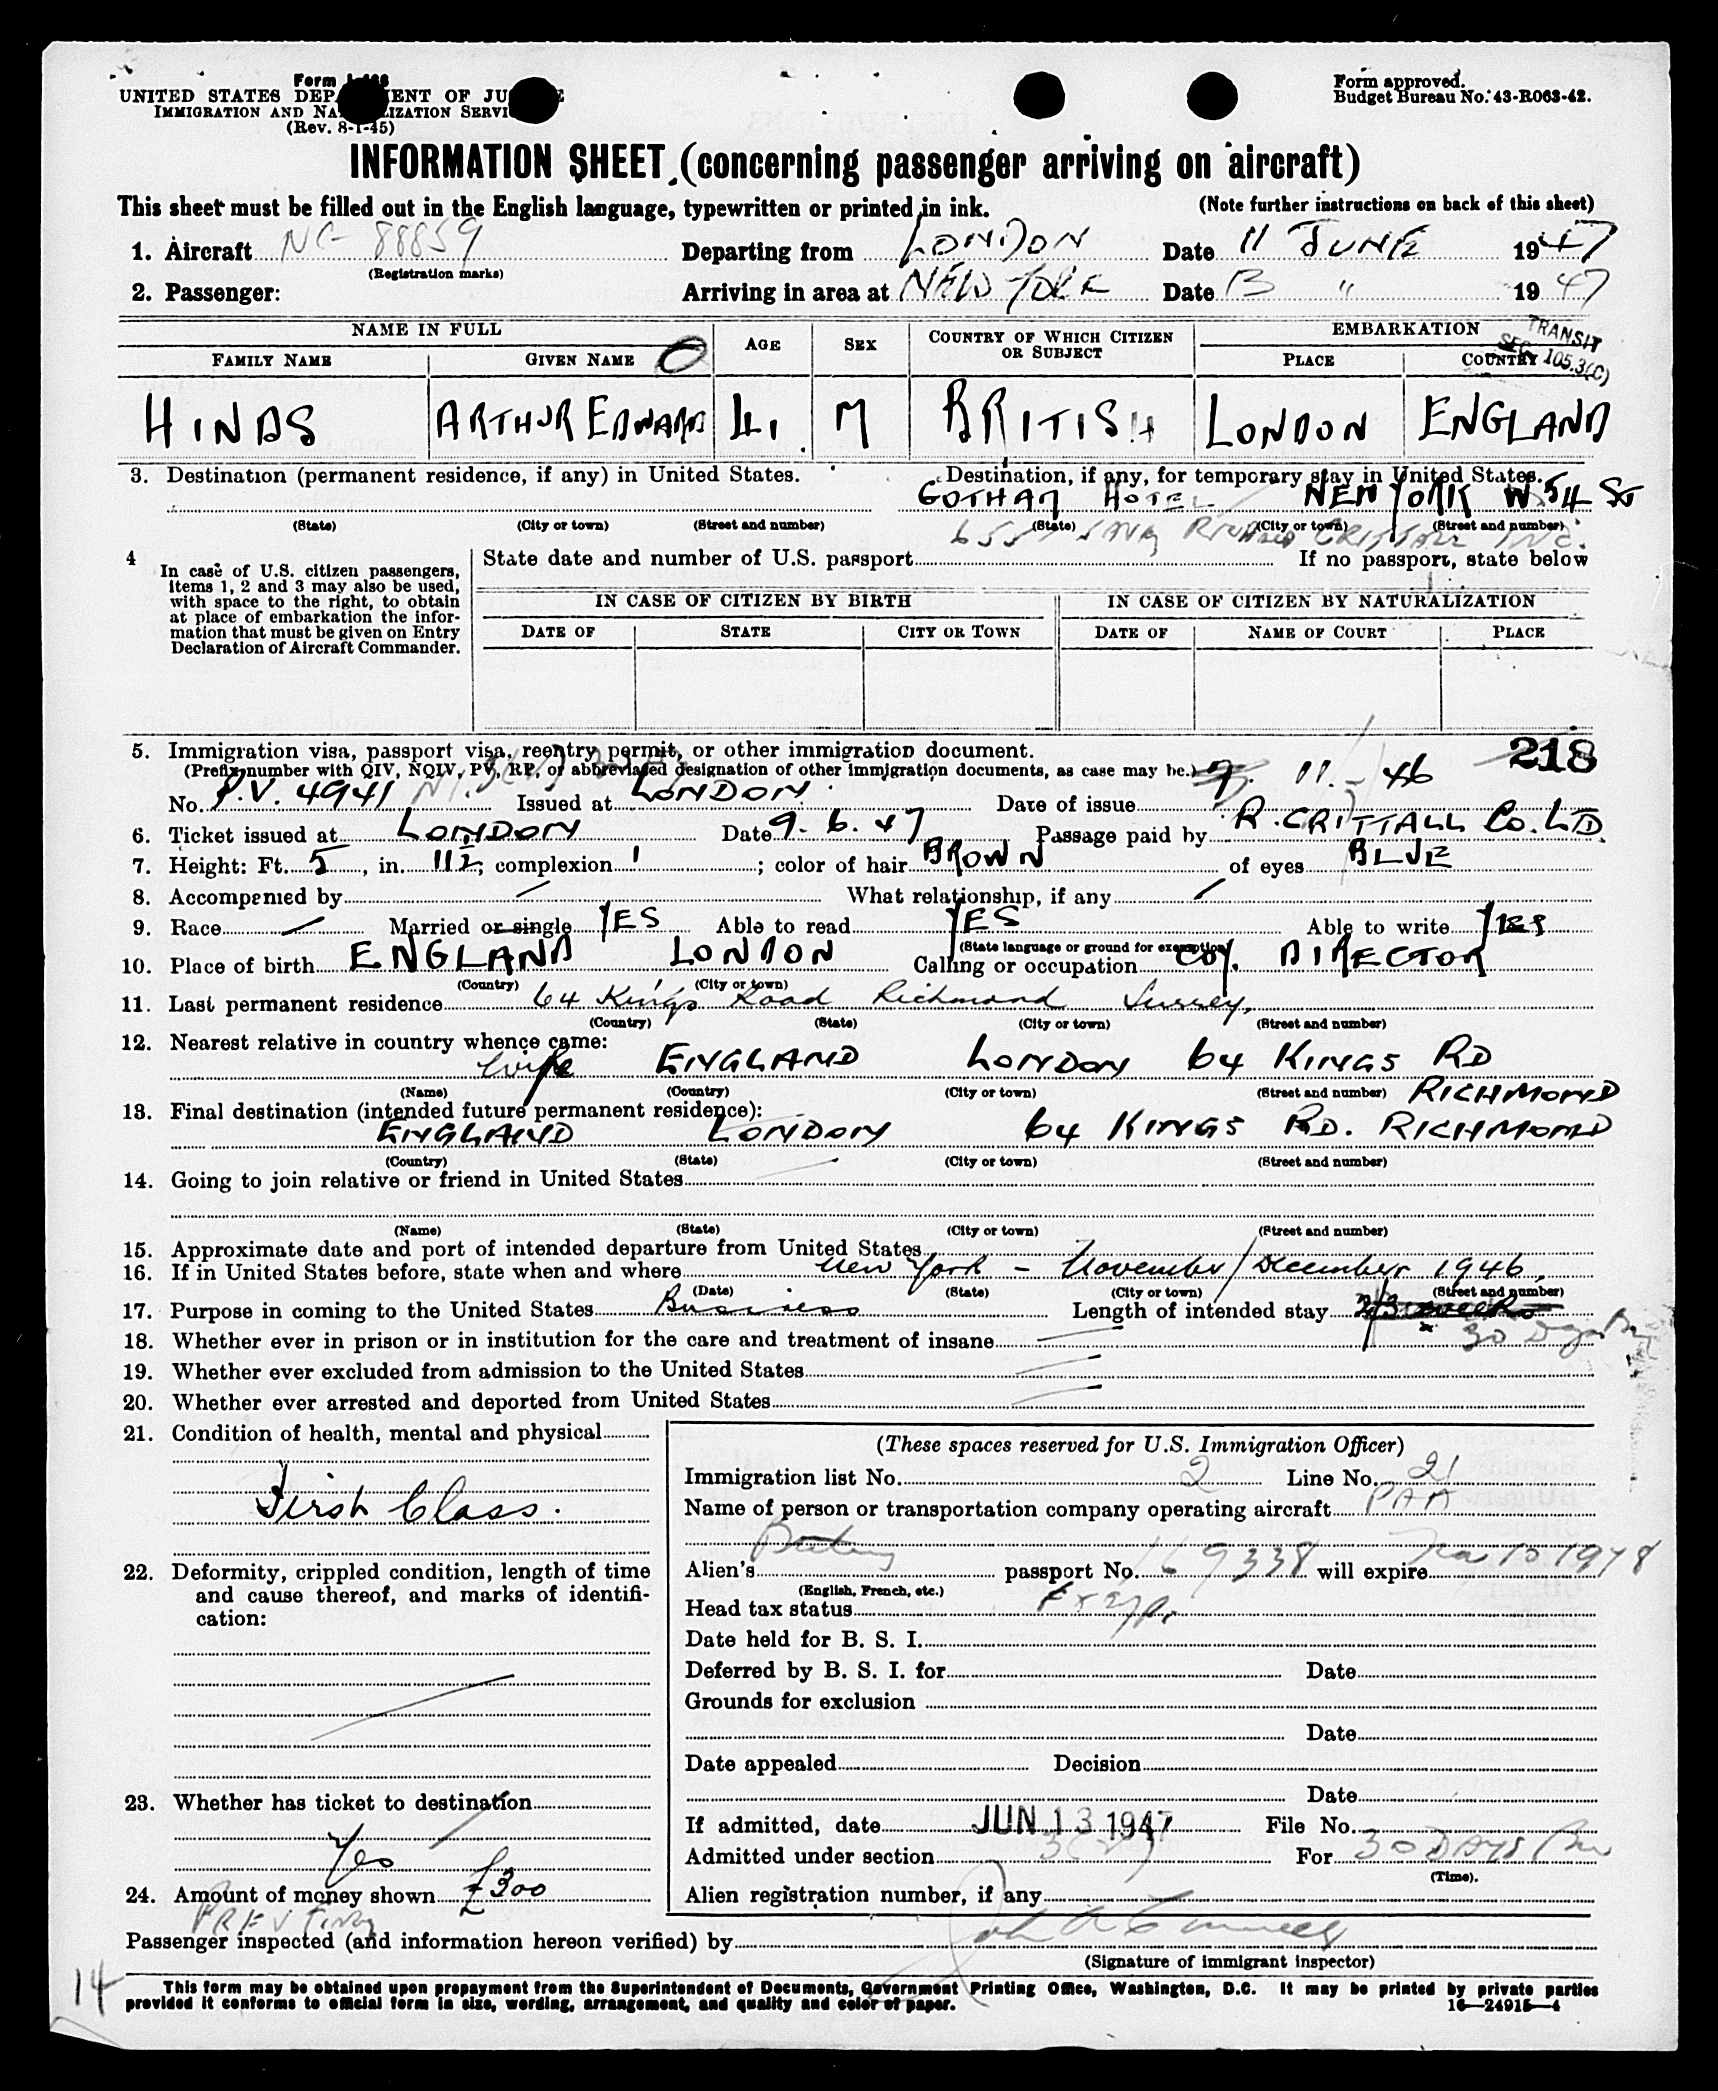 Form
UNITED STATES DEP ENT OF JU E
IMMIGRATION AND NA LIZATION SERVI
(Rev. 8-1-45)
Form approved.
Budget Bureau No. 43-R063-42.
INFORMATION SHEET (concerning passenger arriving on aircraft)
This sheet must be filled out in the English language, typewritten or printed in ink. (Note further instructions on back of this sheet)
1. Aircraft NC-88859 Departing from LONDON Date 11 JUNE 1947
(Registration marks)
2. Passenger: Arriving in area at NEW YORK Date 13 " 1947
NAME IN FULL AGE SEX COUNTRY OF WHICH CITIZEN OR SUBJECT EMBARKATION
FAMILY NAME GIVEN NAME PLACE COUNTRY
TRANSIT
SEC. 105.3(C)
HINDS ARTHUR EDWARD 41. M BRITISH LONDON ENGLAND
3. Destination (permanent residence, if any) in United States. Destination, if any, for temporary stay in United States.
GOTHAM HOTEL NEW YORK W 54 ST
(State) (City or town) (Street and number) (State) (City or town) (Street and number)
4 In case of U.S. citizen passengers, items 1, 2 and 3 may also be used, with space to the right, to obtain at place of embarkation the information that must be given on Entry Declaration of Aircraft Commander.
State date and number of U.S. passport If no passport, state below
IN CASE OF CITIZEN BY BIRTH IN CASE OF CITIZEN BY NATURALIZATION
DATE OF STATE CITY OR TOWN DATE OF NAME OF COURT PLACE
5. Immigration visa, passport visa, reentry permit, or other immigration document. 218
(Prefix number with QIV, NQIV, PV, RP, or abbreviated designation of other immigration documents, as case may be.)
No. P.V. 4941 Issued at LONDON Date of issue 7. 11. - 46
6. Ticket issued at LONDON Date 9. 6. 47 Passage paid by R. CRITTALL Co. LTD.
7. Height: Ft. 5, in. 11½; complexion ; color of hair BROWN of eyes BLUE
8. Accompenied by What relationship, if any
9. Race Married or single YES Able to read YES Able to write YES
(State language or ground for exemption)
10. Place of birth ENGLAND LONDON Calling or occupation COY. DIRECTOR
(Country) (City or town)
11. Last permanent residence 64 Kings Road Richmond Surrey.
(Country) (State) (City or town) (Street and number)
12. Nearest relative in country whence came:
Wife ENGLAND LONDON 64 KINGS RD RICHMOND
(Name) (Country) (City or town) (Street and number)
13. Final destination (intended future permanent residence):
ENGLAND LONDON 64 KINGS RD. RICHMOND
(Country) (State) (City or town) (Street and number)
14. Going to join relative or friend in United States
(Name) (State) (City or town) (Street and number)
15. Approximate date and port of intended departure from United States
16. If in United States before, state when and where New York - November/December 1946.
(Date) (State) (City or town) (Street and number)
17. Purpose in coming to the United States Business Length of intended stay 2/3 weeks
30 Days
18. Whether ever in prison or in institution for the care and treatment of insane
19. Whether ever excluded from admission to the United States
20. Whether ever arrested and deported from United States
21. Condition of health, mental and physical
First Class.
22. Deformity, crippled condition, length of time
and cause thereof, and marks of identifi-
cation:
23. Whether has ticket to destination
Yes
24. Amount of money shown £300
(These spaces reserved for U.S. Immigration Officer)
Immigration list No. 2 Line No. 21
Name of person or transportation company operating aircraft PAA
Alien's passport No. 169338 will expire 10 1948
(English, French, etc.)
Head tax status Exempt
Date held for B. S. I.
Deferred by B. S. I. for Date
Grounds for exclusion
Date
Date appealed Decision
Date
If admitted, date JUN 13 1947 File No.
Admitted under section 3(2) For 30 DAYS
(Time).
Alien registration number, if any
Passenger inspected (and information hereon verified) by
(Signature of immigrant inspector)
14
This form may be obtained upon prepayment from the Superintendent of Documents, Government Printing Office, Washington, D.C. It may be printed by private parties
provided it conforms to official form in size, wording, arrangement, and quality and color of paper. 16—24915-4